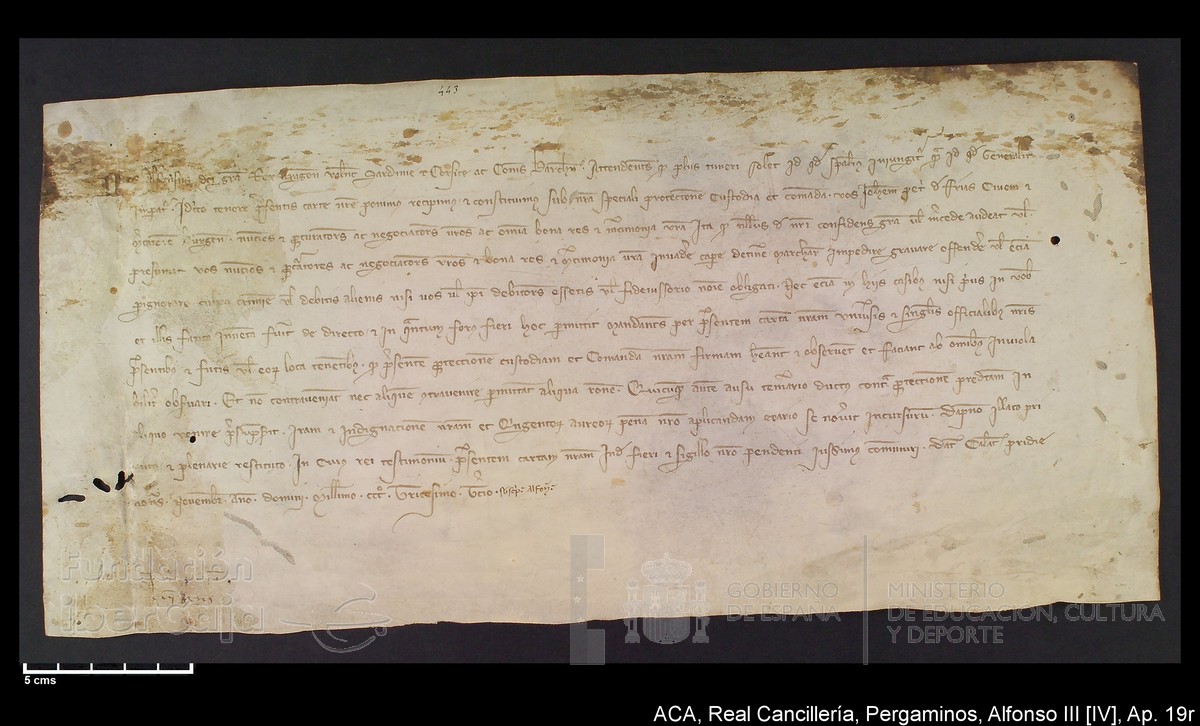 443
Nos Alfonsus dei gra Rex Aragon Valent Sardinie et Corsice ac Comes Barchn. Attendentes qd plus timeri solet id qd spaliter iniungitr qm id qd generaliter
Impatr. Idcirco tenore presentis carte nre ponimus recipimus et constituimus sub nra speciali proteccione custodia et comanda. vos Johem pet de Frias Civem et
nuncios et procuratores ac negociatores vros ac omnia bona res et mercimonia vra. Ita qd nullus de nri confidens gra vel mercede audeat vel
presumat vos nuncios et procuratores ac negociatores vros et bona res et mercimonia vra invadere capere detinere marchare impedire gravare offendere vel eciam
pignorare culpa crimine vel debitis alienis nisi vos vel ipi debitores essetis vel fideiussorio noie obligati. Nec eciam in hiis casibus nisi prius in vobis
et illis fatica inventa fuerit de directo. et in quantum forus fieri hoc permittit mandantes per presentem cartam nram universis et singulis officialibus nris
presentibus et futuris vel eorum loca tenentibus. qd presentem proteccionem custodiam et comandam nram firmam heant et observent et faciant ab omnibus inviola
biliter observari. Et non contraveniant nec aliquem contravenire permittant aliqua racione. Quicumque autem ausu temerario ductus contra proteccionem predictam in
aliquo venire presumpserit. Iram et indignacionem nram et Quingentorum aureorum penam nro aplicandam erario se noverit incursurum. dapno illato pri
mitus et plenarie restituto. In cuius rei testimonium presentem cartam nram inde fieri et sigillo nro pendenti iussimus comuniri. Dat pridie
nonas Novembr. Anno domini Millimo. CCCo. Vicesimo. Tercio
5 cms
Fundación
iberCaja
GOBIERNO
DE ESPAÑA
MINISTERIO
DE EDUCACIÓN, CULTURA
Y DEPORTE
ACA, Real Cancillería, Pergaminos, Alfonso III [IV], Ap. 19r